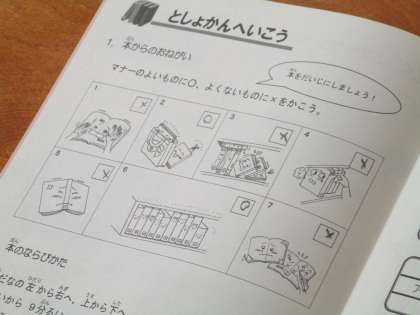 としょかんへいこう
1. 本からのおねがい
ほん
本をだいじにしましょう!
マナーのよいものに○、よくないものに×をかこう。
1 × 2 ○ 3 × 4 ×
5 × 6 ○ 7 ×
本のならびかた
だなの左から右へ、上から下へ
いから 9分るい